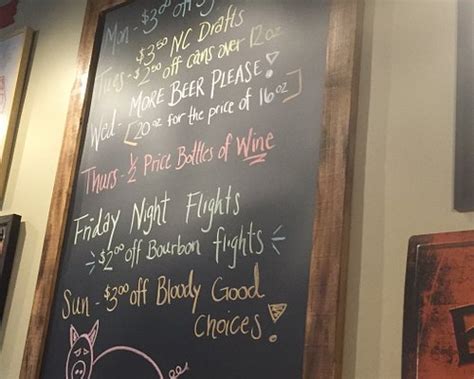 Mon - $3.00 off
$3.50 NC Drafts
Tues - $2.50 off cans over 12oz
MORE BEER PLEASE!
Wed - [20oz for the price of 16oz]
Thurs - ½ Price Bottles of Wine
Friday Night Flights
$2.00 off Bourbon flights
Sun - $3.00 off Bloody Good
Choices!